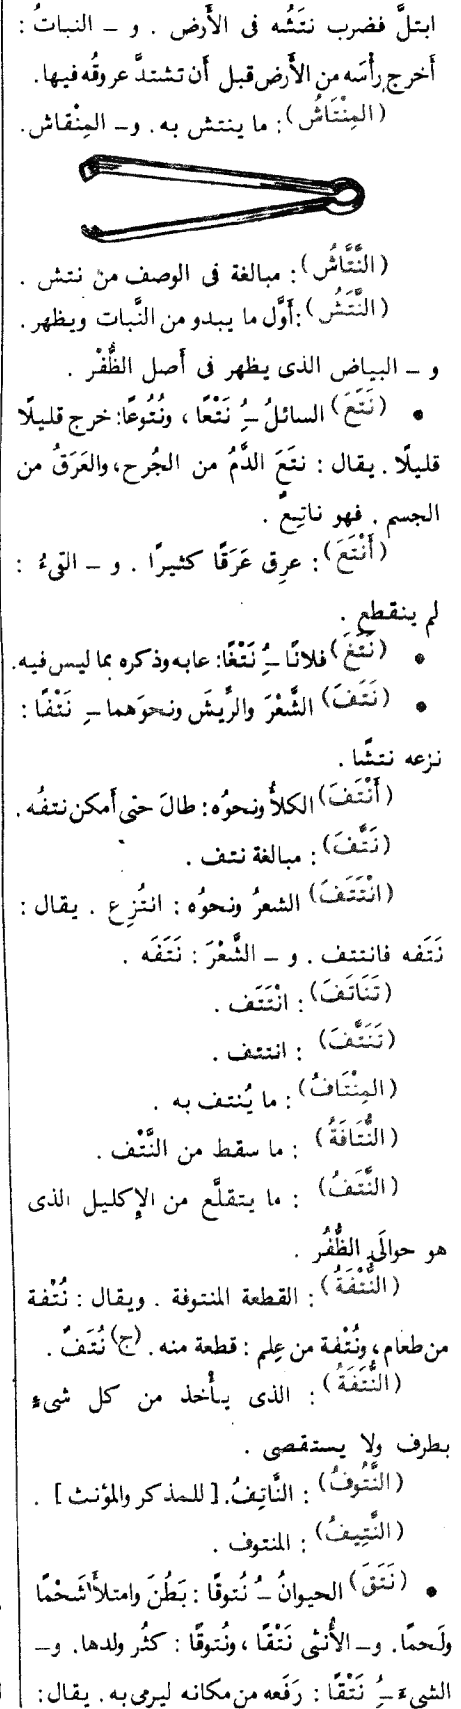 ابتلَّ فضرب نتَشُه فى الأَرض . و – النباتُ :
أَخرج رأْسَه من الأَرض قبل أَن تشتدَّ عروقُه فيها.
(المِنْتَاشُ): ما ينتش به. و– المِنْقاش.
(النَّتَّاشُ): مبالغة فى الوصف من نتش .
(النَّتَشُ): أَوَّل ما يبدو من النَّبات ويظهر.
و – البياض الذى يظهر فى أَصل الظُّفْر .
• (نَتَعَ) السائلُ –ُِ نَتْعًا ، ونُتُوعًا: خرج قليلًا
قليلًا . يقال : نتَعَ الدَّمُ من الجُرح، والعَرَقُ من
الجسم . فهو ناتِعٌ .
(أَنْتَعَ): عرِق عَرَقًا كثيرًا . و – القىءُ :
لم ينقطع .
• (نَتَغَ) فلانًا –ُِ نَتْغًا: عابه وذكره بما ليس فيه.
• (نَتَفَ) الشَّعْرَ والرِّيشَ ونحوَهما –ِ نَتْفًا :
نزعه نتشًا .
(أَنْتَفَ) الكلأُ ونحوُه: طالَ حتى أَمكن نتفُه .
(نَتَّفَ): مبالغة نتف .
(انْتَتَفَ) الشعرُ ونحوُه : انتُزِع . يقال :
نَتَفه فانتتف . و – الشَّعْرَ : نَتَفَه .
(تَنَاتَفَ) : انْتَتَف .
(تَنَتَّفَ) : انتتف .
(المِنْتَافُ): ما يُنتف به .
(النُّتَافَةُ) : ما سقط من النَّتْف .
(النَّتَفُ) : ما يتقلَّع من الإِكليل الذى
هو حوالَىِ الظُّفُر .
(النُّتْفَةُ) : القطعة المنتوفة . ويقال : نُتْفة
من طعام، ونُتْفة من عِلم : قطعة منه. (ج) نُتَفٌ .
(النُّتَفَةُ): الذى يـأْخذ من كل شىءٍ
بطرف ولا يستقصى .
(النَّتُوفُ) : النَّاتِفُ. [للمذكر والمؤنث] .
(النَّتِيفُ) : المنتوف .
• (نَتَقَ) الحيوانُ –ُ نُتوقًا : بَطُنَ وامتلأَ شَحْمًا
ولَحمًا. و– الأُنثى نَتْقًا ، ونُتوقًا : كثُر ولدها. و–
الشىءَ –ُِ نَتْقًا : رَفَعه من مكانه ليرمى به. يقال: